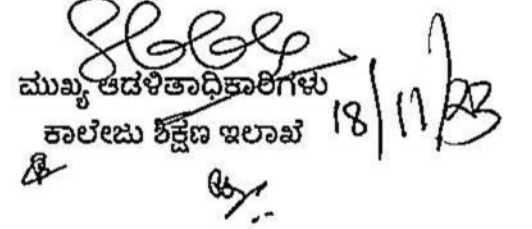 ಮುಖ್ಯ ಆಡಳಿತಾಧಿಕಾರಿಗಳು
ಕಾಲೇಜು ಶಿಕ್ಷಣ ಇಲಾಖೆ
18/11/23